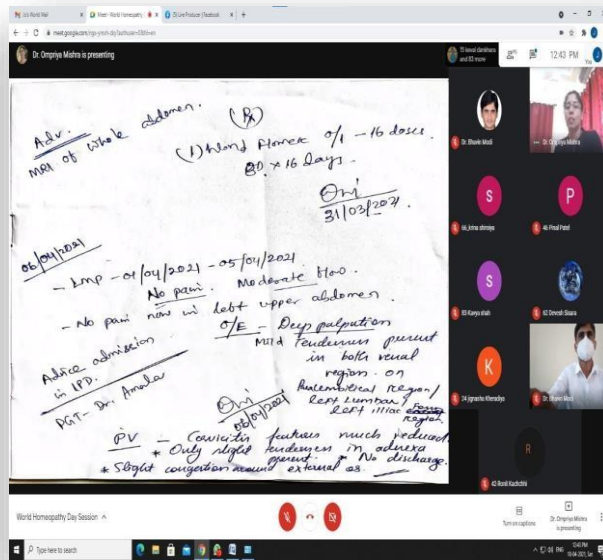 Jo's World Mail
Meet - World Homeopathy
(1) Live Producer | Facebook
meet.google.com
Dr. Ompriya Mishra is presenting
and 83 more
12:43 PM
You
Adv.
MRI of whole abdomen.
(Rx)
0/1 - 16 doses.
x 16 Days.
31/03/2021.
06/04/2021
- LMP - 01/04/2021 - 05/04/2021.
No pain. Moderate flow.
- No pain now in left upper abdomen.
O/E - Deep palpation
Mild tenderness present
in both renal
region. on
Paraumbilical region/
left lumbar/
left illiac Fossa
region.
Advice admission
in IPD.
PGT- Dr. Amola
06/04/2021
PV - Cervicitis features much reduced
* Only slight tenderness in adnexa
present. * No discharge.
* Slight congestion around external os.
Dr. Bhavin Modi
Dr. Ompriya Mishra
S
66_krina shiroiya
P
46 Pinal Patel
S
83 Kavya shah
62 Devesh Sisara
K
24 jignasha Kheradiya
Dr. Bhavin Modi
R
42-Ronit Kachchhi
World Homeopathy Day Session
Turn on captions
Dr. Ompriya Mishra
is presenting
Type here to search
ENG